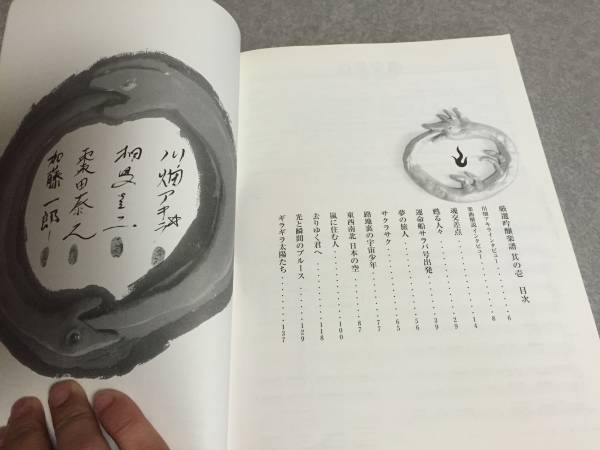 厳選吟醸楽譜 其の壱 目次
川畑アキラインタビュー・・・・・・・6
楽曲解説インタビュー・・・・・・・8
魂交差点・・・・・・・14
甦る人々・・・・・・・29
運命船サラバ号出発・・・・・・・39
夢の旅人・・・・・・・56
サクラサク・・・・・・・65
路地裏の宇宙少年・・・・・・・77
東西南北 日本の空・・・・・・・87
嵐に住む人・・・・・・・100
去りゆく君へ・・・・・・・118
光と瞬間のブルース・・・・・・・129
ギラギラ太陽たち・・・・・・・137
川畑アキラ
栗田泰人
加藤一郎